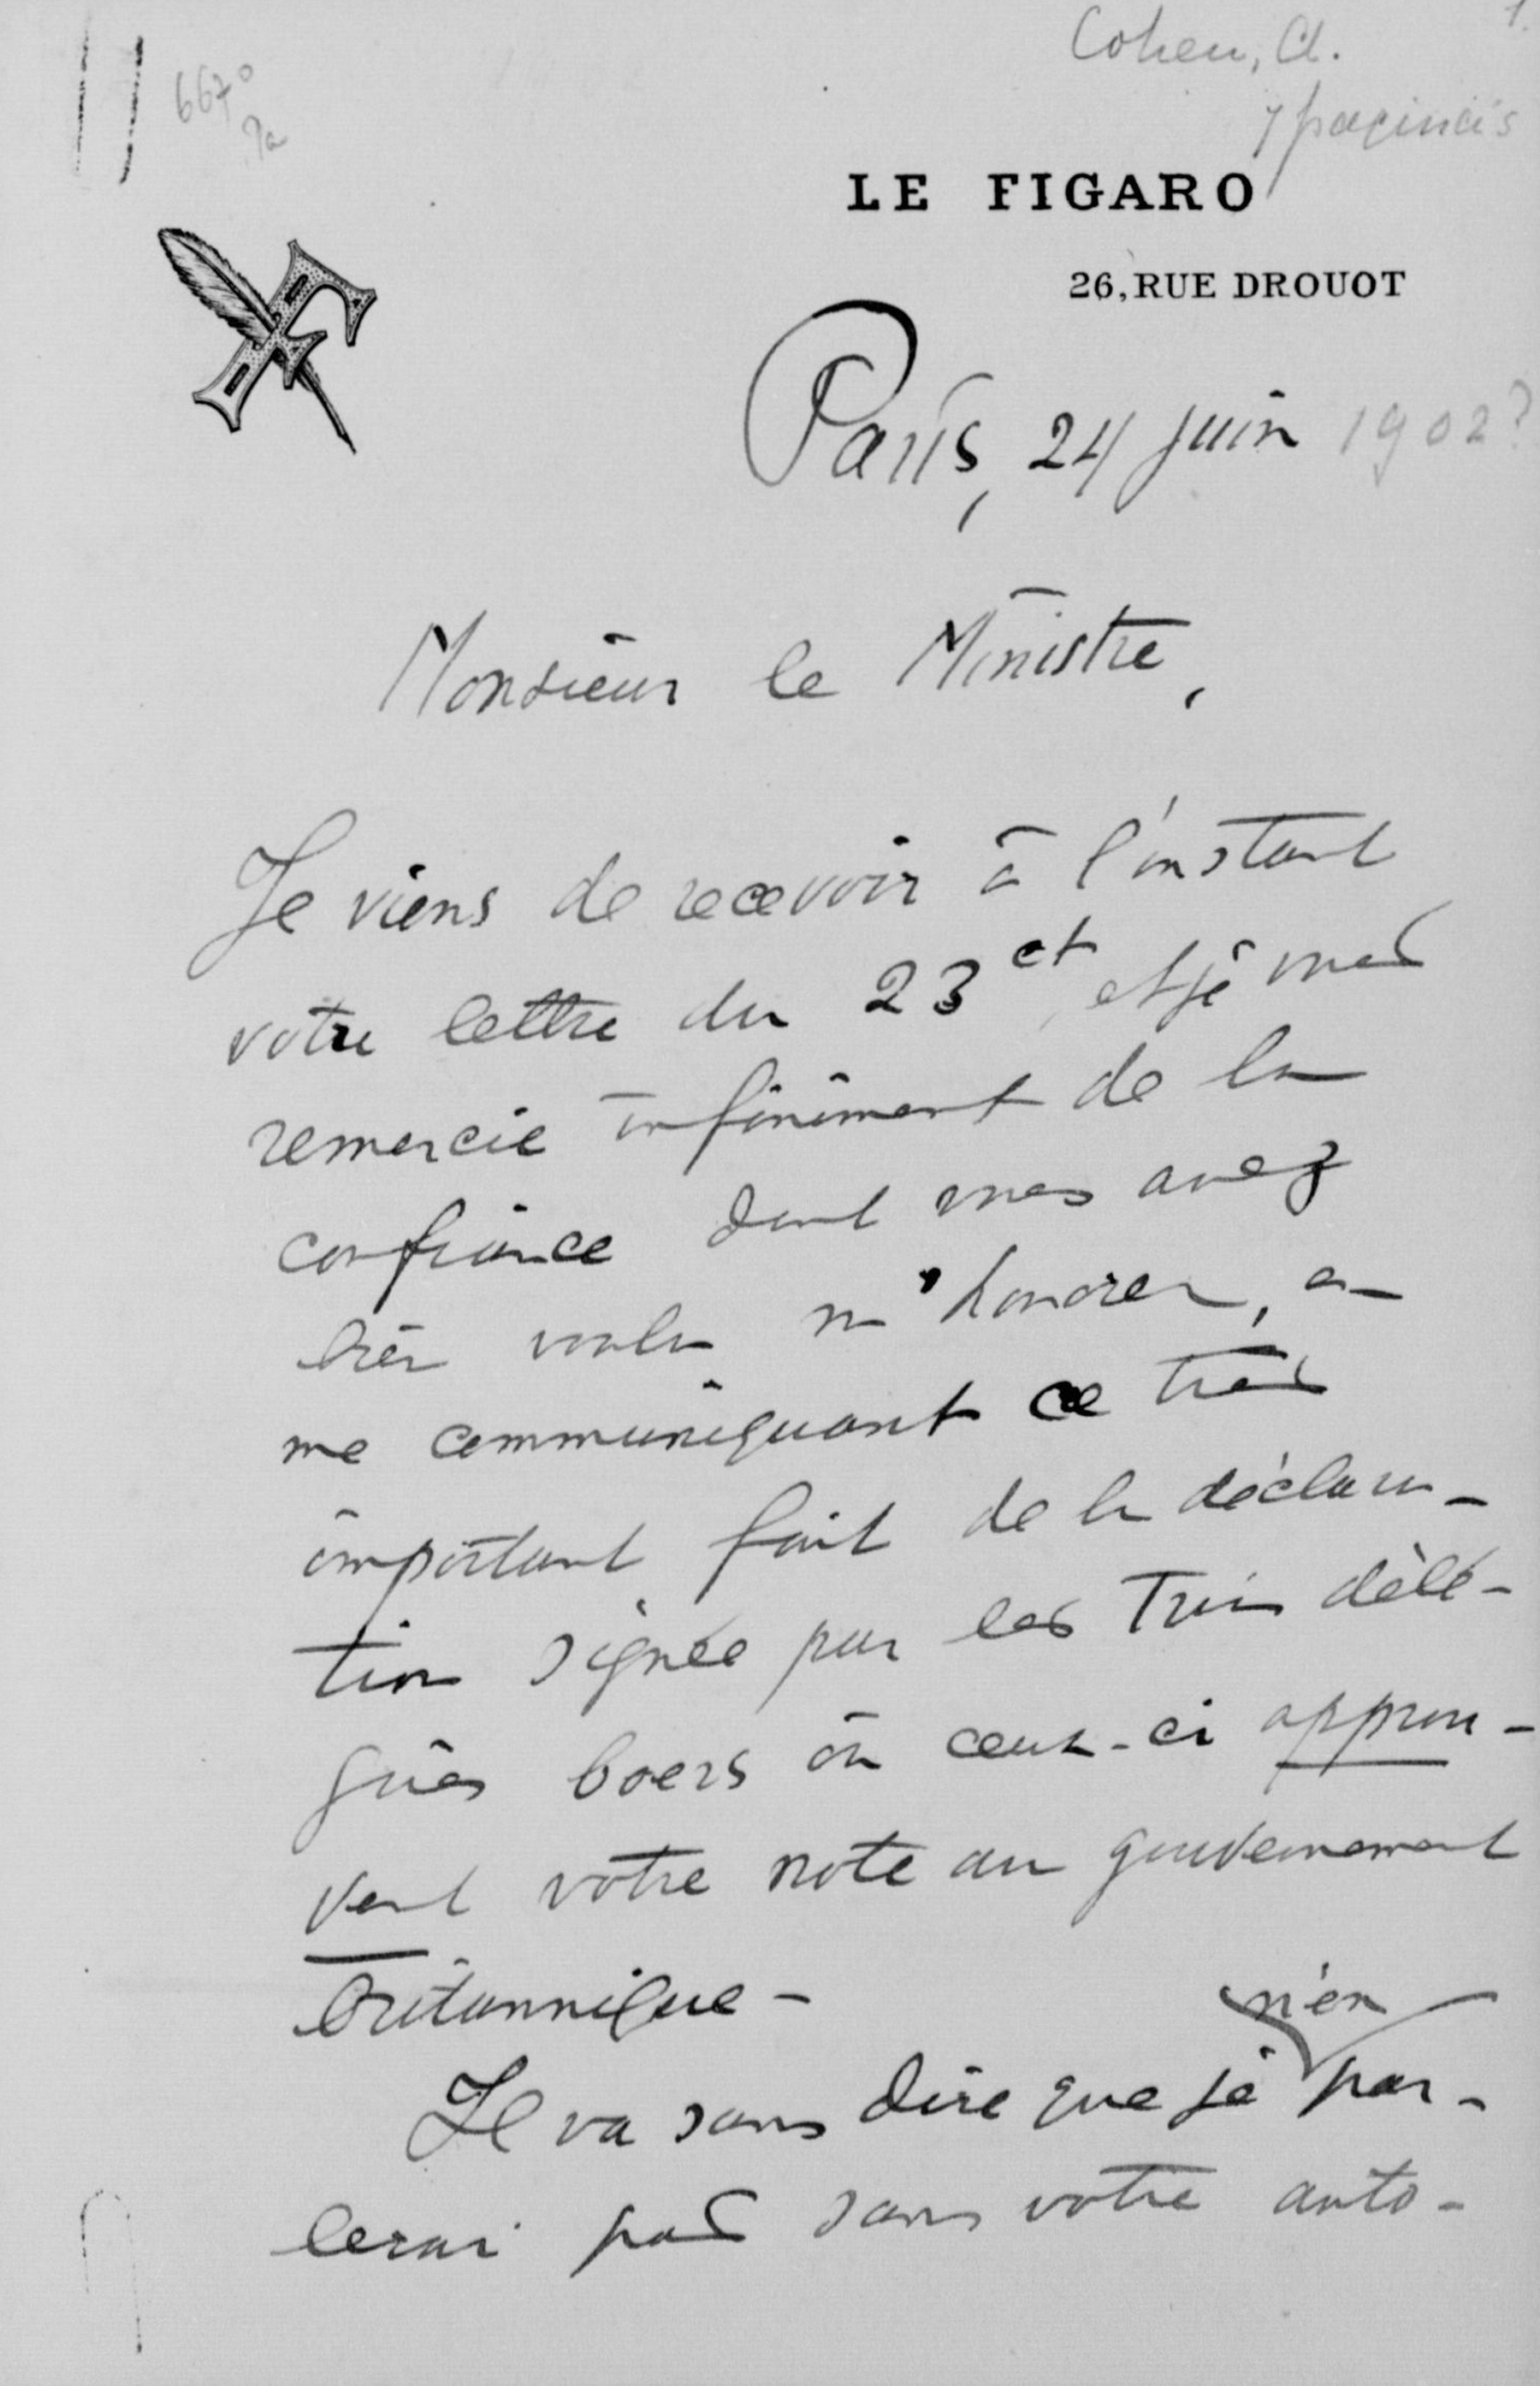 Cohen, A.
7 pagina's
6670
9a
LE FIGARO
26, RUE DROUOT
Paris, 24 juin 1902?
Monsieur le Ministre,
Je viens de recevoir à l'instant
votre lettre du 23 ct, et je vous
remercie infiniment de la
confiance dont vous avez
bien voulu m'honorer, en
me communiquant ce très
important fait de la déclara-
tion signée par les trois délé-
gués boers où ceux-ci approu-
vent votre note au gouvernement
britannique -
n'en
Il va sans dire que je par-
lerai pas sans votre auto-